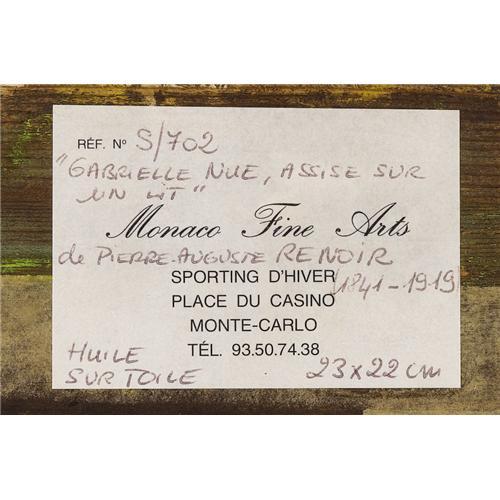 RÉF. Nº S/702
"GABRIELLE NUE, ASSISE SUR
UN LIT"
Monaco Fine Arts
de PIERRE-AUGUSTE RENOIR
SPORTING D'HIVER
(1841-1919)
PLACE DU CASINO
MONTE-CARLO
TÉL. 93.50.74.38
HUILE
SUR TOILE
23x22 cm